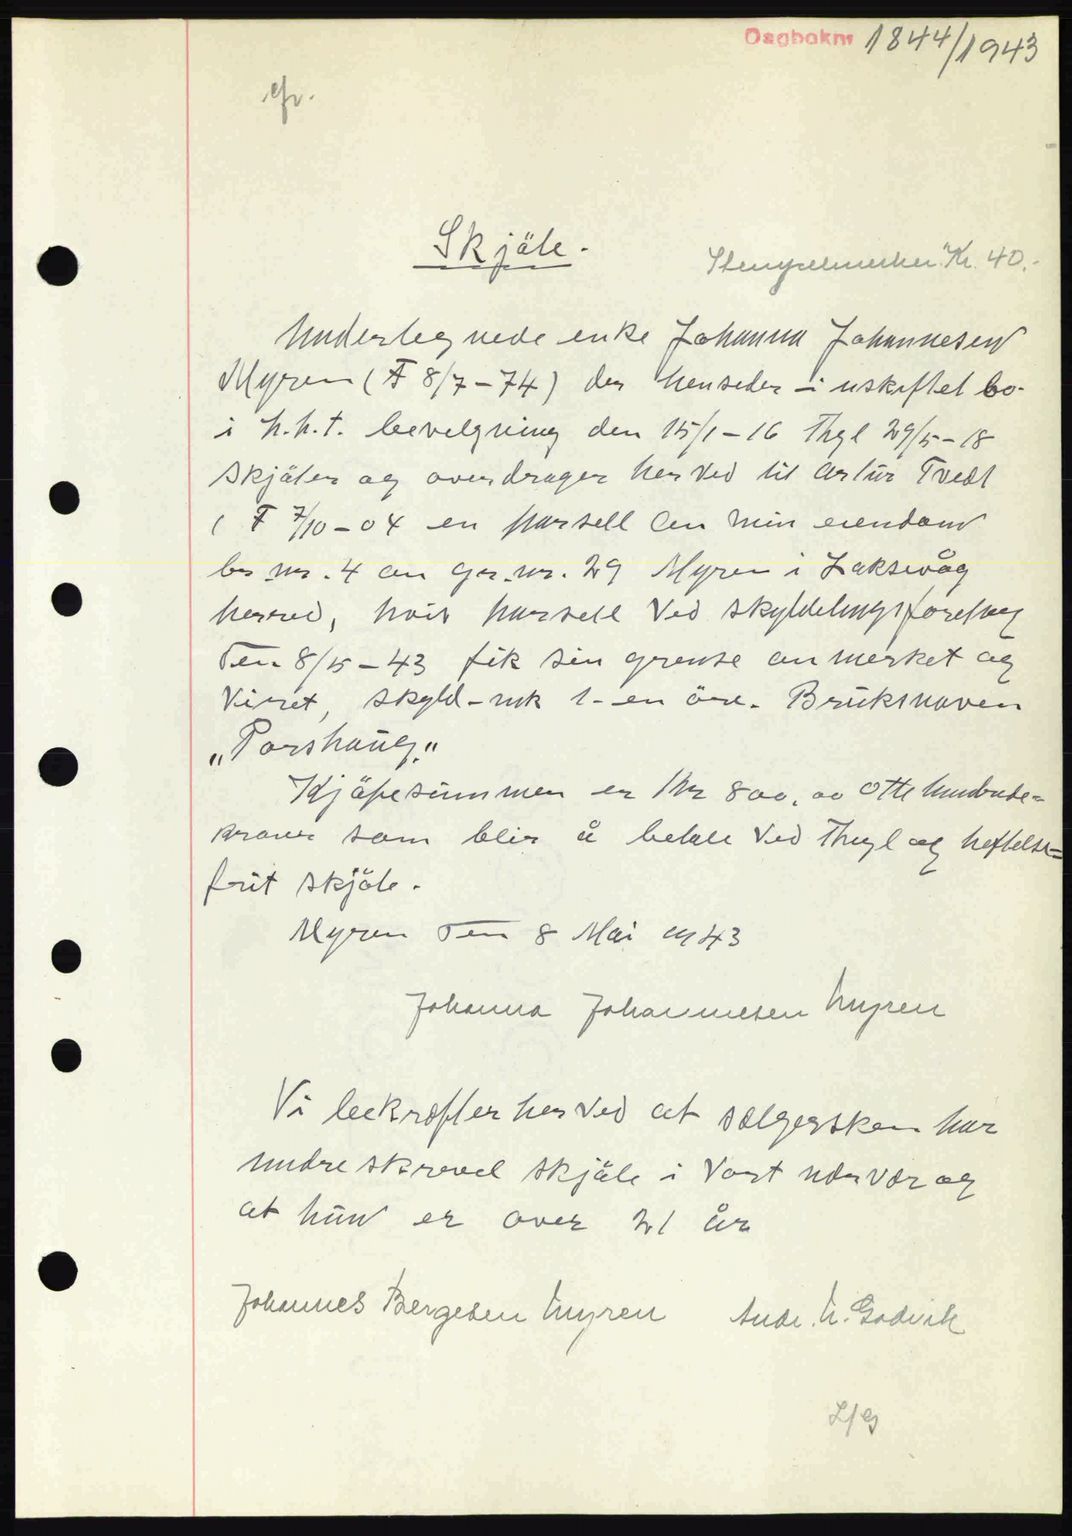 Dagboknr 1844/1943
Skjöte.
Stempelmerker Kr. 40.-
Underteg nede enke Johanna Johannesen
Myren (F 8/7-74) der henseder i uskiftet bo
i h.h.t. bevelgning den 15/1-16 Thgl 29/5-18
Skjöter og overdrager herved til Artur Tvedt
( F 7/10-04 en parsell av min eiendom
br nr. 4 av gr. nr. 29 Myren i Laksevåg
herred, hvis parsell ved skyldelingsforetag
den 8/5-43 fik sin grense av merket og
Viset, skyld-mk 1-en öre. Bruksnaven
„Porshaug."
Kjöpesummen er Kr 800,00 Otte hundrde=
kroner som blir å betale ved Thgl og heftelse=
frit skjöte.
Myren den 8 Mai 1943
Johanna Johannesen Myren
Vi bekræfter herved at sælgersken har
undreskrevet skjöte i vort nærvær og
at hun er over 21 år
Johannes Bergesen Myren Andr. M. Godvik